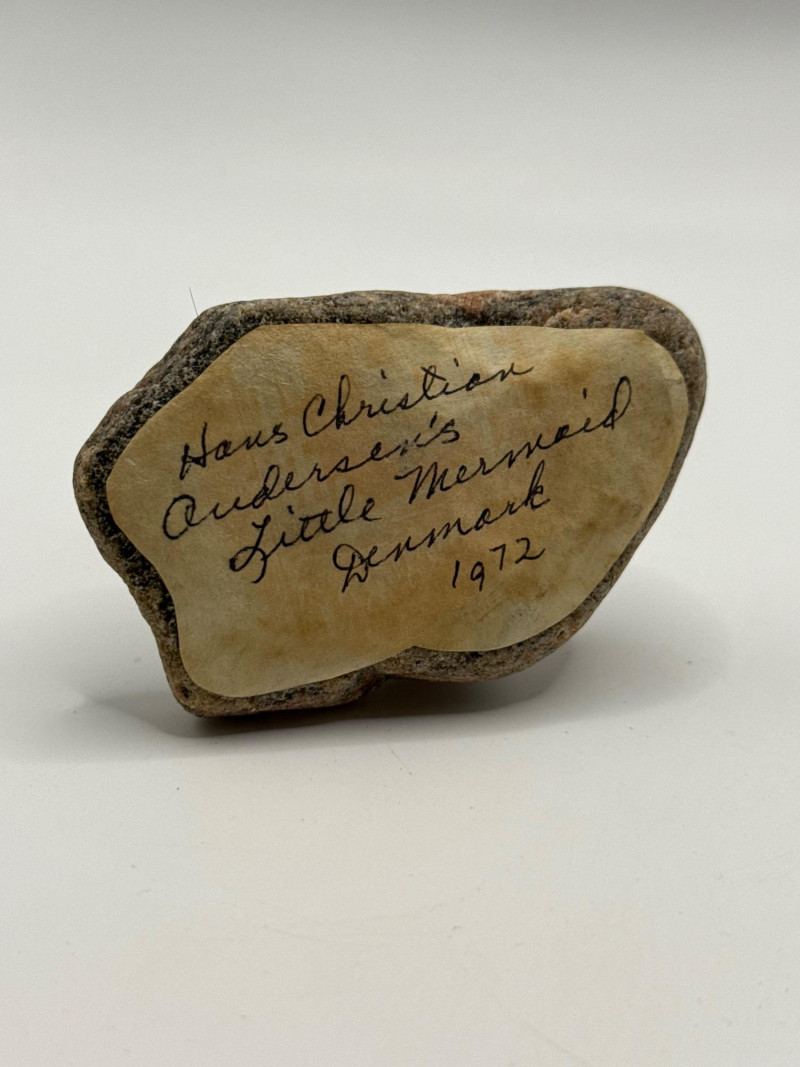 Hans Christian
Andersen's
Little Mermaid
Denmark
1972